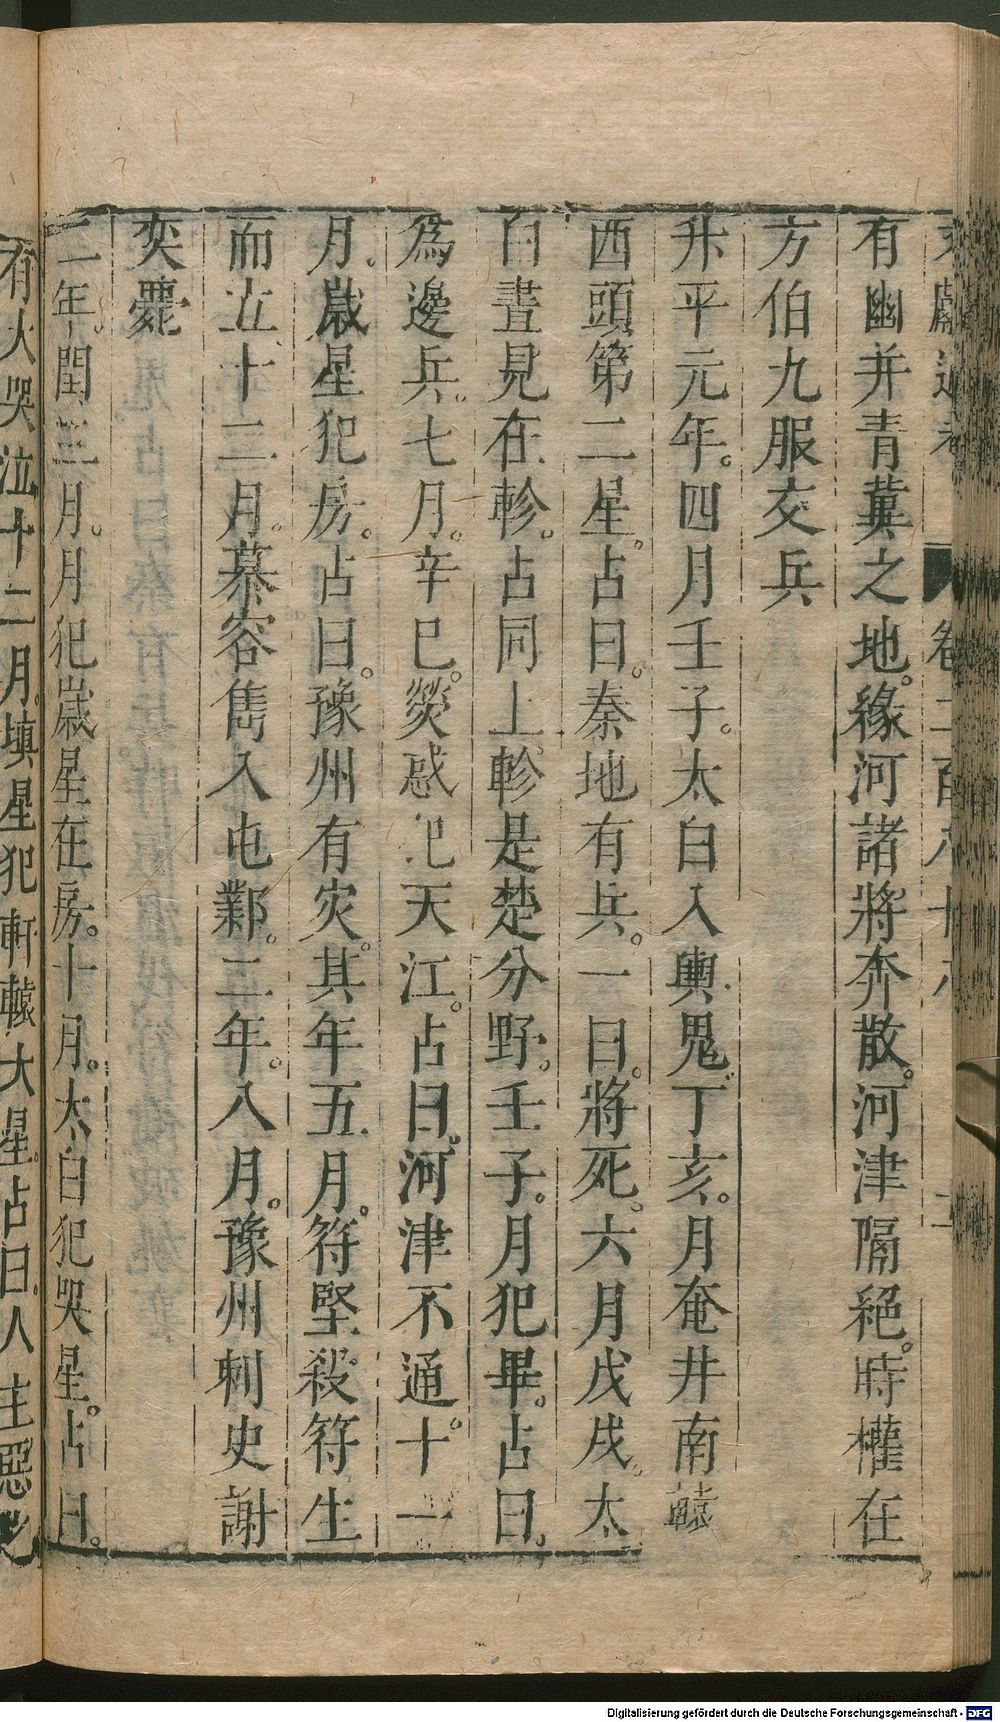 文獻通考 卷二百八十六
有幽并青冀之地。緣河諸將奔散。河津隔絕。時權在
方伯九服交兵
升平元年。四月壬子。太白入輿鬼。丁亥。月奄井南轅
西頭第二星。占曰。秦地有兵。一曰。將死。六月戊戌。太
白晝見在軫。占同上軫是楚分野。壬子。月犯畢。占曰。
為邊兵。七月。辛巳。熒惑犯天江。占曰。河津不通。十一
月。歲星犯房。占曰。豫州有灾。其年五月。苻堅殺苻生
而立十二月。慕容雋入屯鄴。二年。八月。豫州刺史謝
奕薨
二年。閏三月。月犯歲星在房。十月。太白犯哭星。占曰。
有大哭泣十二月。填星犯軒轅大星。占曰。人主惡之
Digitalisierung gefördert durch die Deutsche Forschungsgemeinschaft - DFG